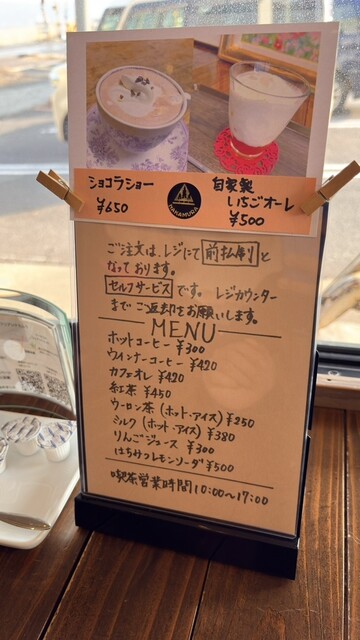 ショコラショー
¥650
NAKAMURA
自家製
いちごオーレ
¥500
ご注文は、レジにて前払制と
なって おります。
セルフサービスです。レジカウンター
まで ご返却をお願いします。
MENU
ホットコーヒー ¥300
ウインナーコーヒー ¥420
カフェオレ ¥420
紅茶 ¥450
ウーロン茶 (ホット・アイス) ¥250
ミルク (ホット・アイス) ¥380
りんごジュース ¥300
はちみつレモンソーダ ¥500
喫茶営業時間 10:00〜17:00